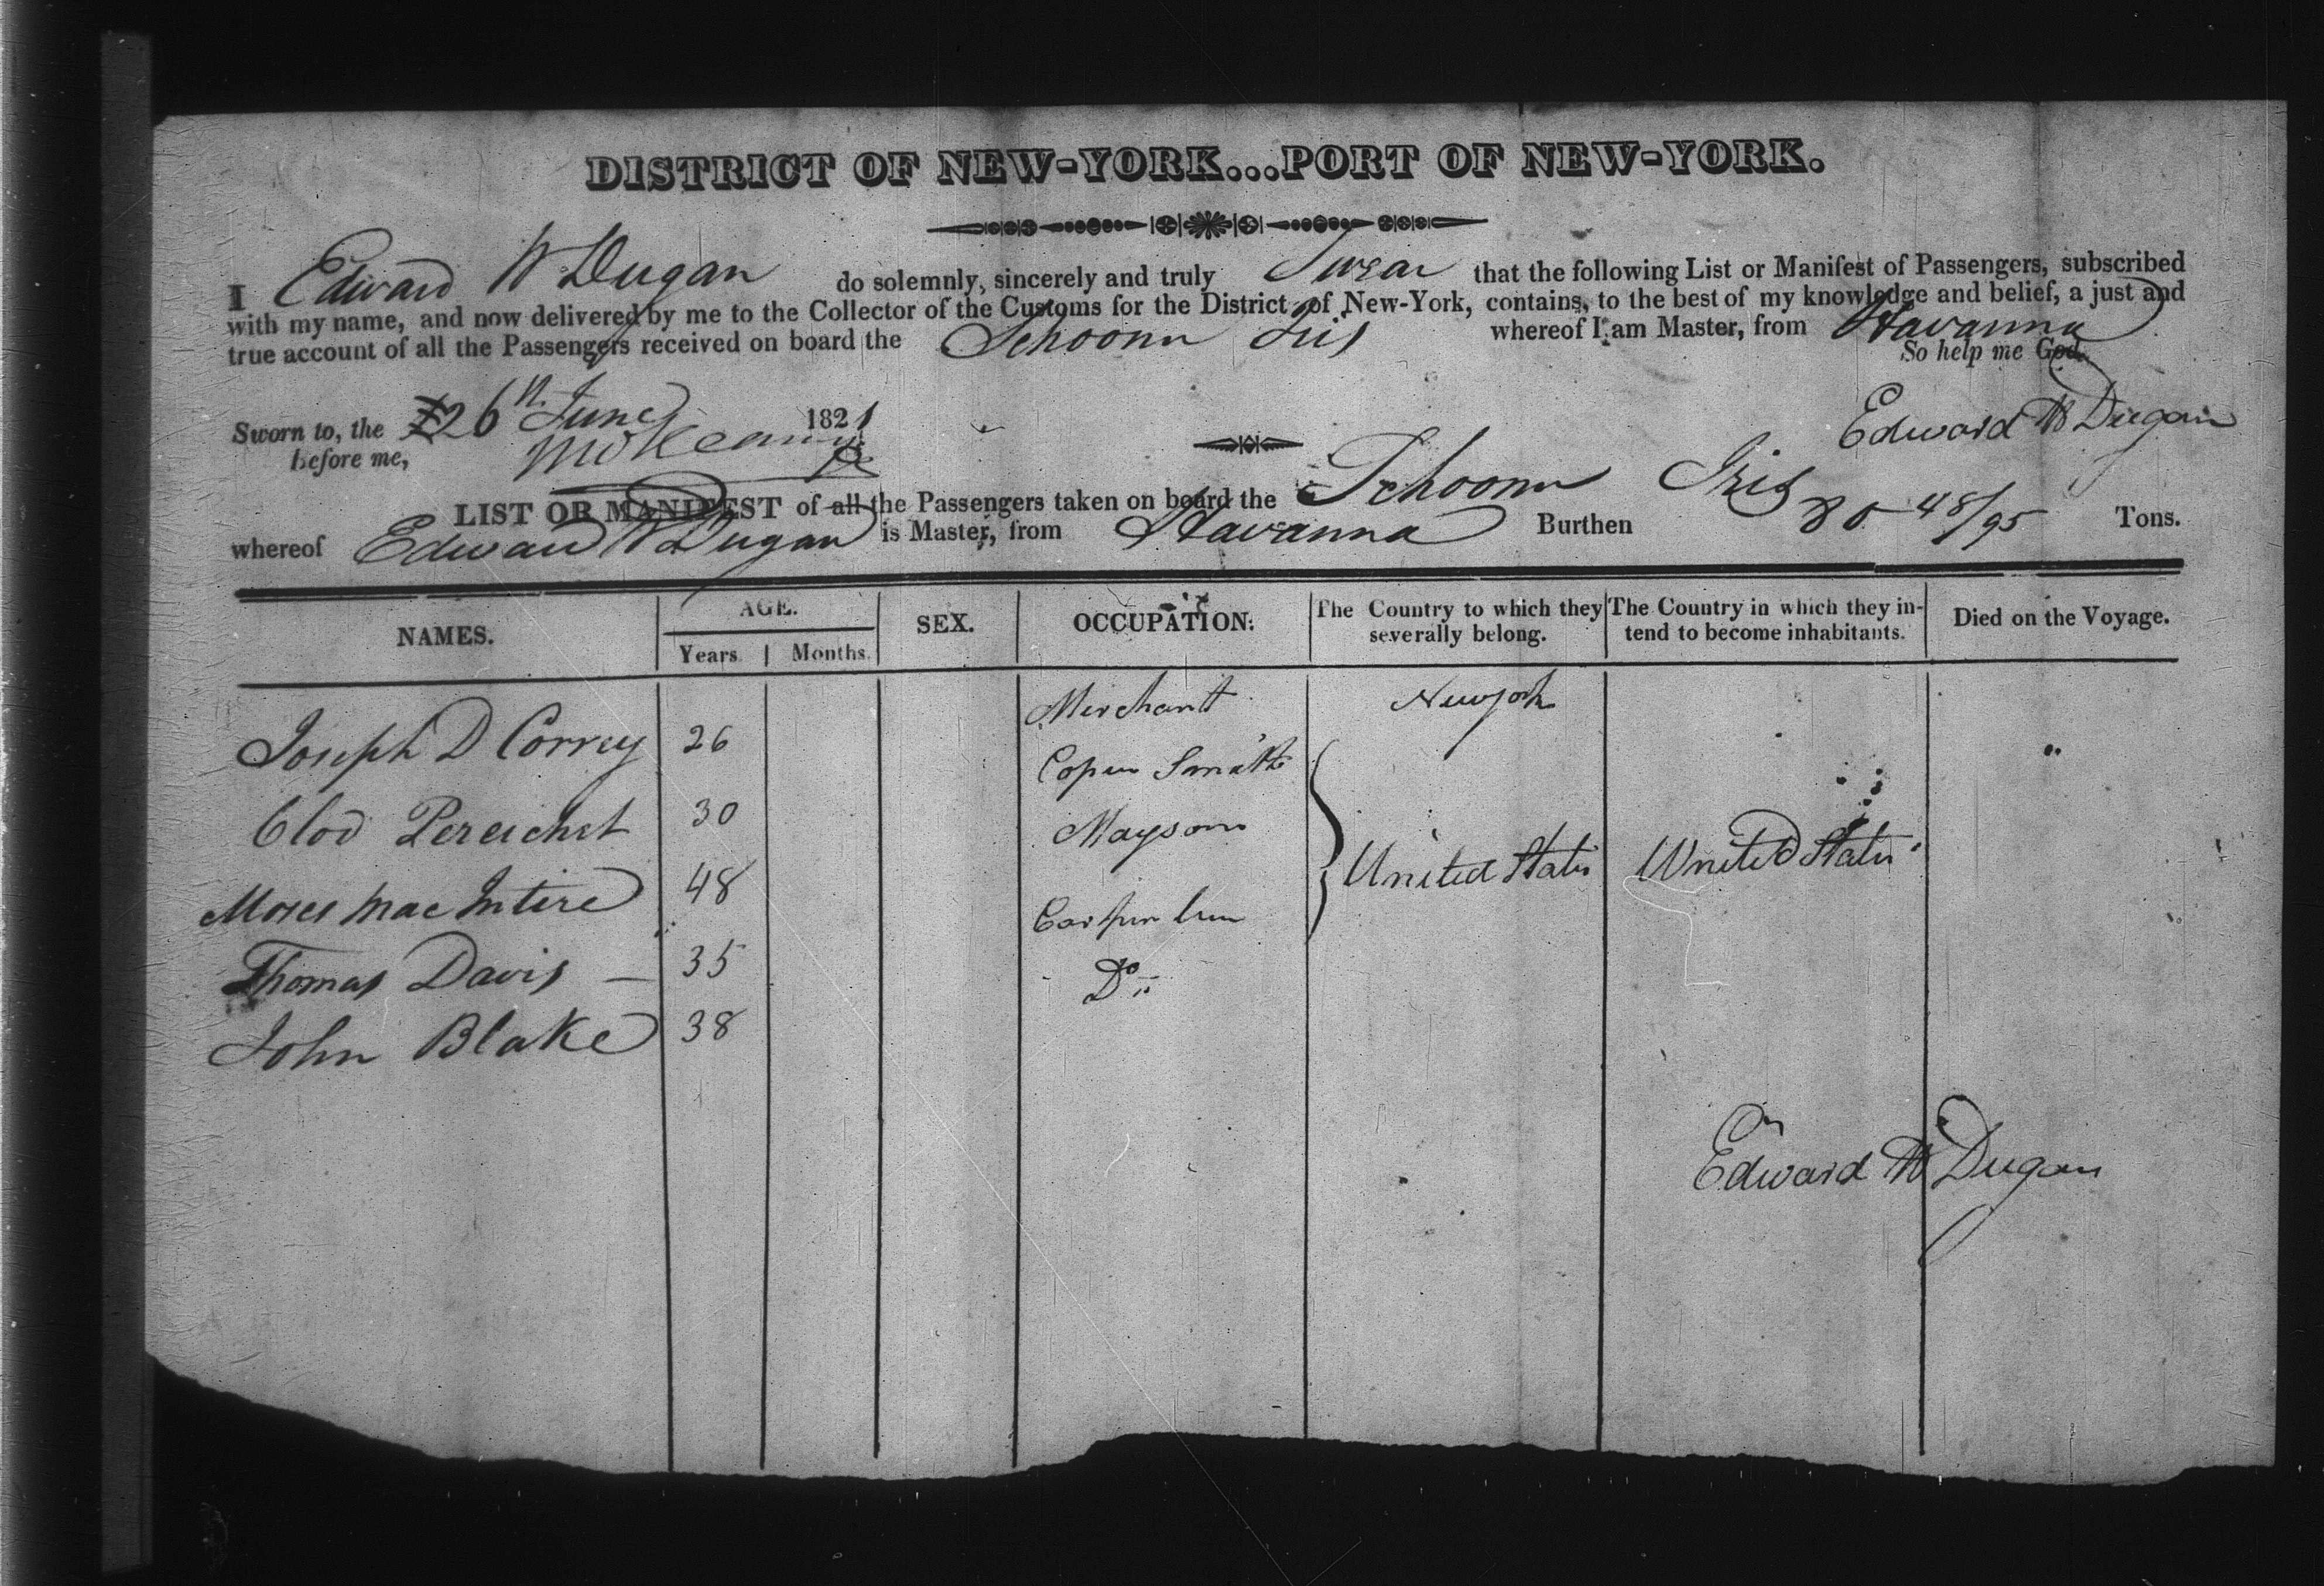 DISTRICT OF NEW-YORK...PORT OF NEW-YORK.
I Edward W Dugan do solemnly, sincerely and truly Swear that the following List or Manifest of Passengers, subscribed
with my name, and now delivered by me to the Collector of the Customs for the District of New-York, contains, to the best of my knowledge and belief, a just and
true account of all the Passengers received on board the Schoonr Iris whereof I am Master, from Havanna
So help me God.
Sworn to, the 26th June 1821
before me,
Edward W Dugan
LIST OR MANIFEST of all the Passengers taken on board the Schoonr Iris
whereof Edward W Dugan is Master, from Havanna Burthen 80 48/95 Tons.
NAMES. AGE. Years. Months. SEX. OCCUPATION. The Country to which they severally belong. The Country in which they intend to become inhabitants. Died on the Voyage.
Joseph D Correy 26 Merchant Newyork
Clod Pereichet 30 Coper Smith
Moses Mac Intire 48 Mayson United States United States
Thomas Davis — 35 Carpenter
John Blake 38 Do
Edward W Dugan